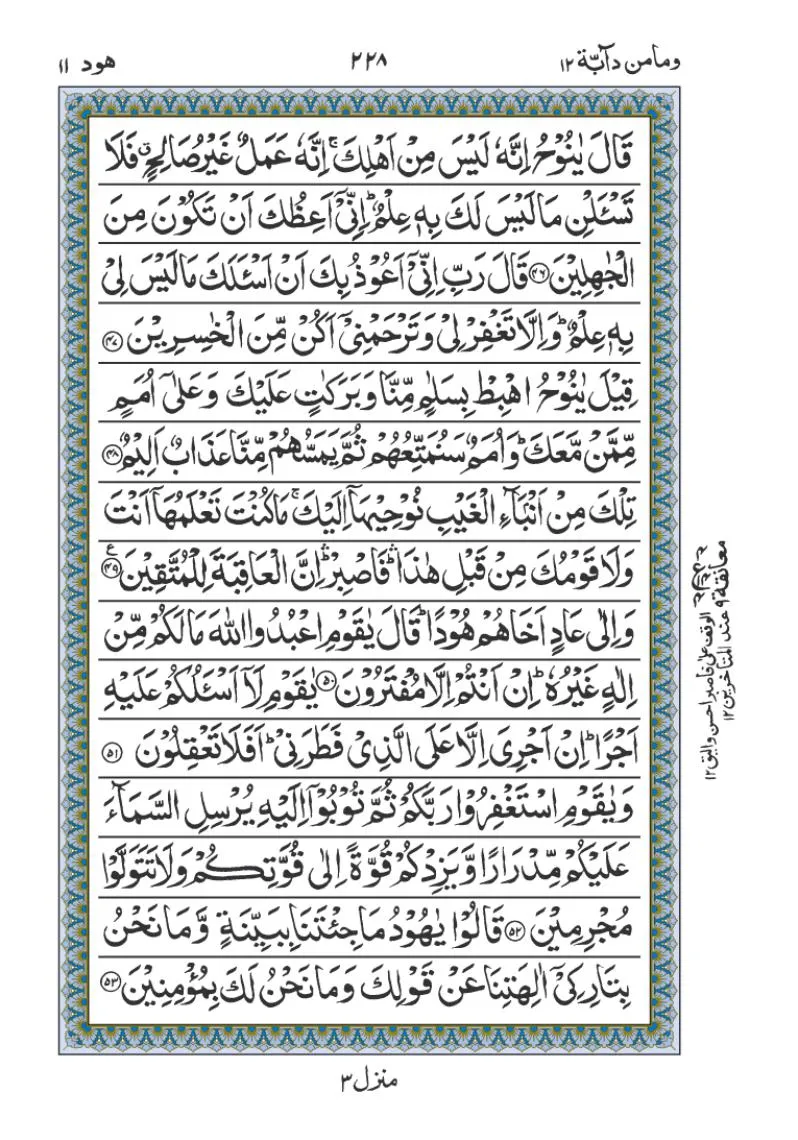 وما من دآبّة ١٢ ٢٢٨ هود ١١
قَالَ يٰنُوْحُ اِنَّهٗ لَيْسَ مِنْ اَهْلِكَ ۚ اِنَّهٗ عَمَلٌ غَيْرُ صَالِحٍ ۖ فَلَا
تَسْـَٔلْنِ مَا لَيْسَ لَكَ بِهٖ عِلْمٌ ؕ اِنِّيْۤ اَعِظُكَ اَنْ تَكُوْنَ مِنَ
الْجٰهِلِيْنَ ۝٤٦ قَالَ رَبِّ اِنِّيْۤ اَعُوْذُ بِكَ اَنْ اَسْـَٔلَكَ مَا لَيْسَ لِيْ
بِهٖ عِلْمٌ ؕ وَاِلَّا تَغْفِرْ لِيْ وَتَرْحَمْنِيْۤ اَكُنْ مِّنَ الْخٰسِرِيْنَ ۝٤٧
قِيْلَ يٰنُوْحُ اهْبِطْ بِسَلٰمٍ مِّنَّا وَبَرَكٰتٍ عَلَيْكَ وَعَلٰۤى اُمَمٍ
مِّمَّنْ مَّعَكَ ؕ وَاُمَمٌ سَنُمَتِّعُهُمْ ثُمَّ يَمَسُّهُمْ مِّنَّا عَذَابٌ اَلِيْمٌ ۝٤٨
تِلْكَ مِنْ اَنْۢبَآءِ الْغَيْبِ نُوْحِيْهَاۤ اِلَيْكَ ۚ مَا كُنْتَ تَعْلَمُهَاۤ اَنْتَ
وَلَا قَوْمُكَ مِنْ قَبْلِ هٰذَا ۛؕ فَاصْبِرْ ۛؕ اِنَّ الْعَاقِبَةَ لِلْمُتَّقِيْنَ ۝٤٩ ع
وَاِلٰى عَادٍ اَخَاهُمْ هُوْدًا ؕ قَالَ يٰقَوْمِ اعْبُدُوا اللّٰهَ مَا لَكُمْ مِّنْ
اِلٰهٍ غَيْرُهٗ ؕ اِنْ اَنْتُمْ اِلَّا مُفْتَرُوْنَ ۝٥٠ يٰقَوْمِ لَاۤ اَسْـَٔلُكُمْ عَلَيْهِ
اَجْرًا ؕ اِنْ اَجْرِيَ اِلَّا عَلَى الَّذِيْ فَطَرَنِيْ ؕ اَفَلَا تَعْقِلُوْنَ ۝٥١
وَيٰقَوْمِ اسْتَغْفِرُوْا رَبَّكُمْ ثُمَّ تُوْبُوْۤا اِلَيْهِ يُرْسِلِ السَّمَآءَ
عَلَيْكُمْ مِّدْرَارًا وَّيَزِدْكُمْ قُوَّةً اِلٰى قُوَّتِكُمْ وَلَا تَتَوَلَّوْا
مُجْرِمِيْنَ ۝٥٢ قَالُوْا يٰهُوْدُ مَا جِئْتَنَا بِبَيِّنَةٍ وَّمَا نَحْنُ
بِتَارِكِيْۤ اٰلِهَتِنَا عَنْ قَوْلِكَ وَمَا نَحْنُ لَكَ بِمُؤْمِنِيْنَ ۝٥٣
معانقة ٩ عند المتاخرين ١٢
الوقف علىٰ فاصبر احسن واليق ١٢
منزل ٣